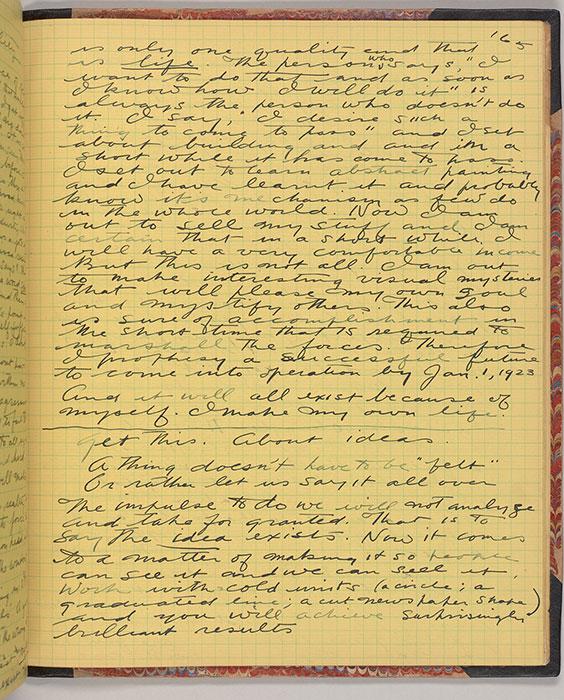 165
is only one quality and that
is life. The person who says, "I
want to do that and as soon as
I know how I will do it" is
always the person who doesn't do
it. I say, "I desire such a
thing to come to pass" and I set
about building and and in a
short while it has come to pass.
I set out to learn abstract painting
and I have learnt it and probably
know its mechanism as few do
in the whole world. Now I am
out to sell my stuff and I am
certain that in a short while I
will have a very comfortable income
But this is not all I am out
to make interesting visual mysteries
that will please my own soul
and mystify others. This also
is sure of accomplishment in
the short time that is required to
marshall the forces. Therefore
I prophesy a successful future
to come into operation by Jan. 1, 1923
And it will all exist because of
myself. I make my own life.
Get this. About ideas.
A thing doesn't have to be "felt"
Or rather let us say it all over
The impulse to do we will not analyze
and take for granted. That is to
say the idea exists. Now it comes
to a matter of making it so people
can see it and we can sell it.
Work with cold units (a circle; a
graduated line; a cut newspaper shape)
and you will achieve surprisingly
brilliant results